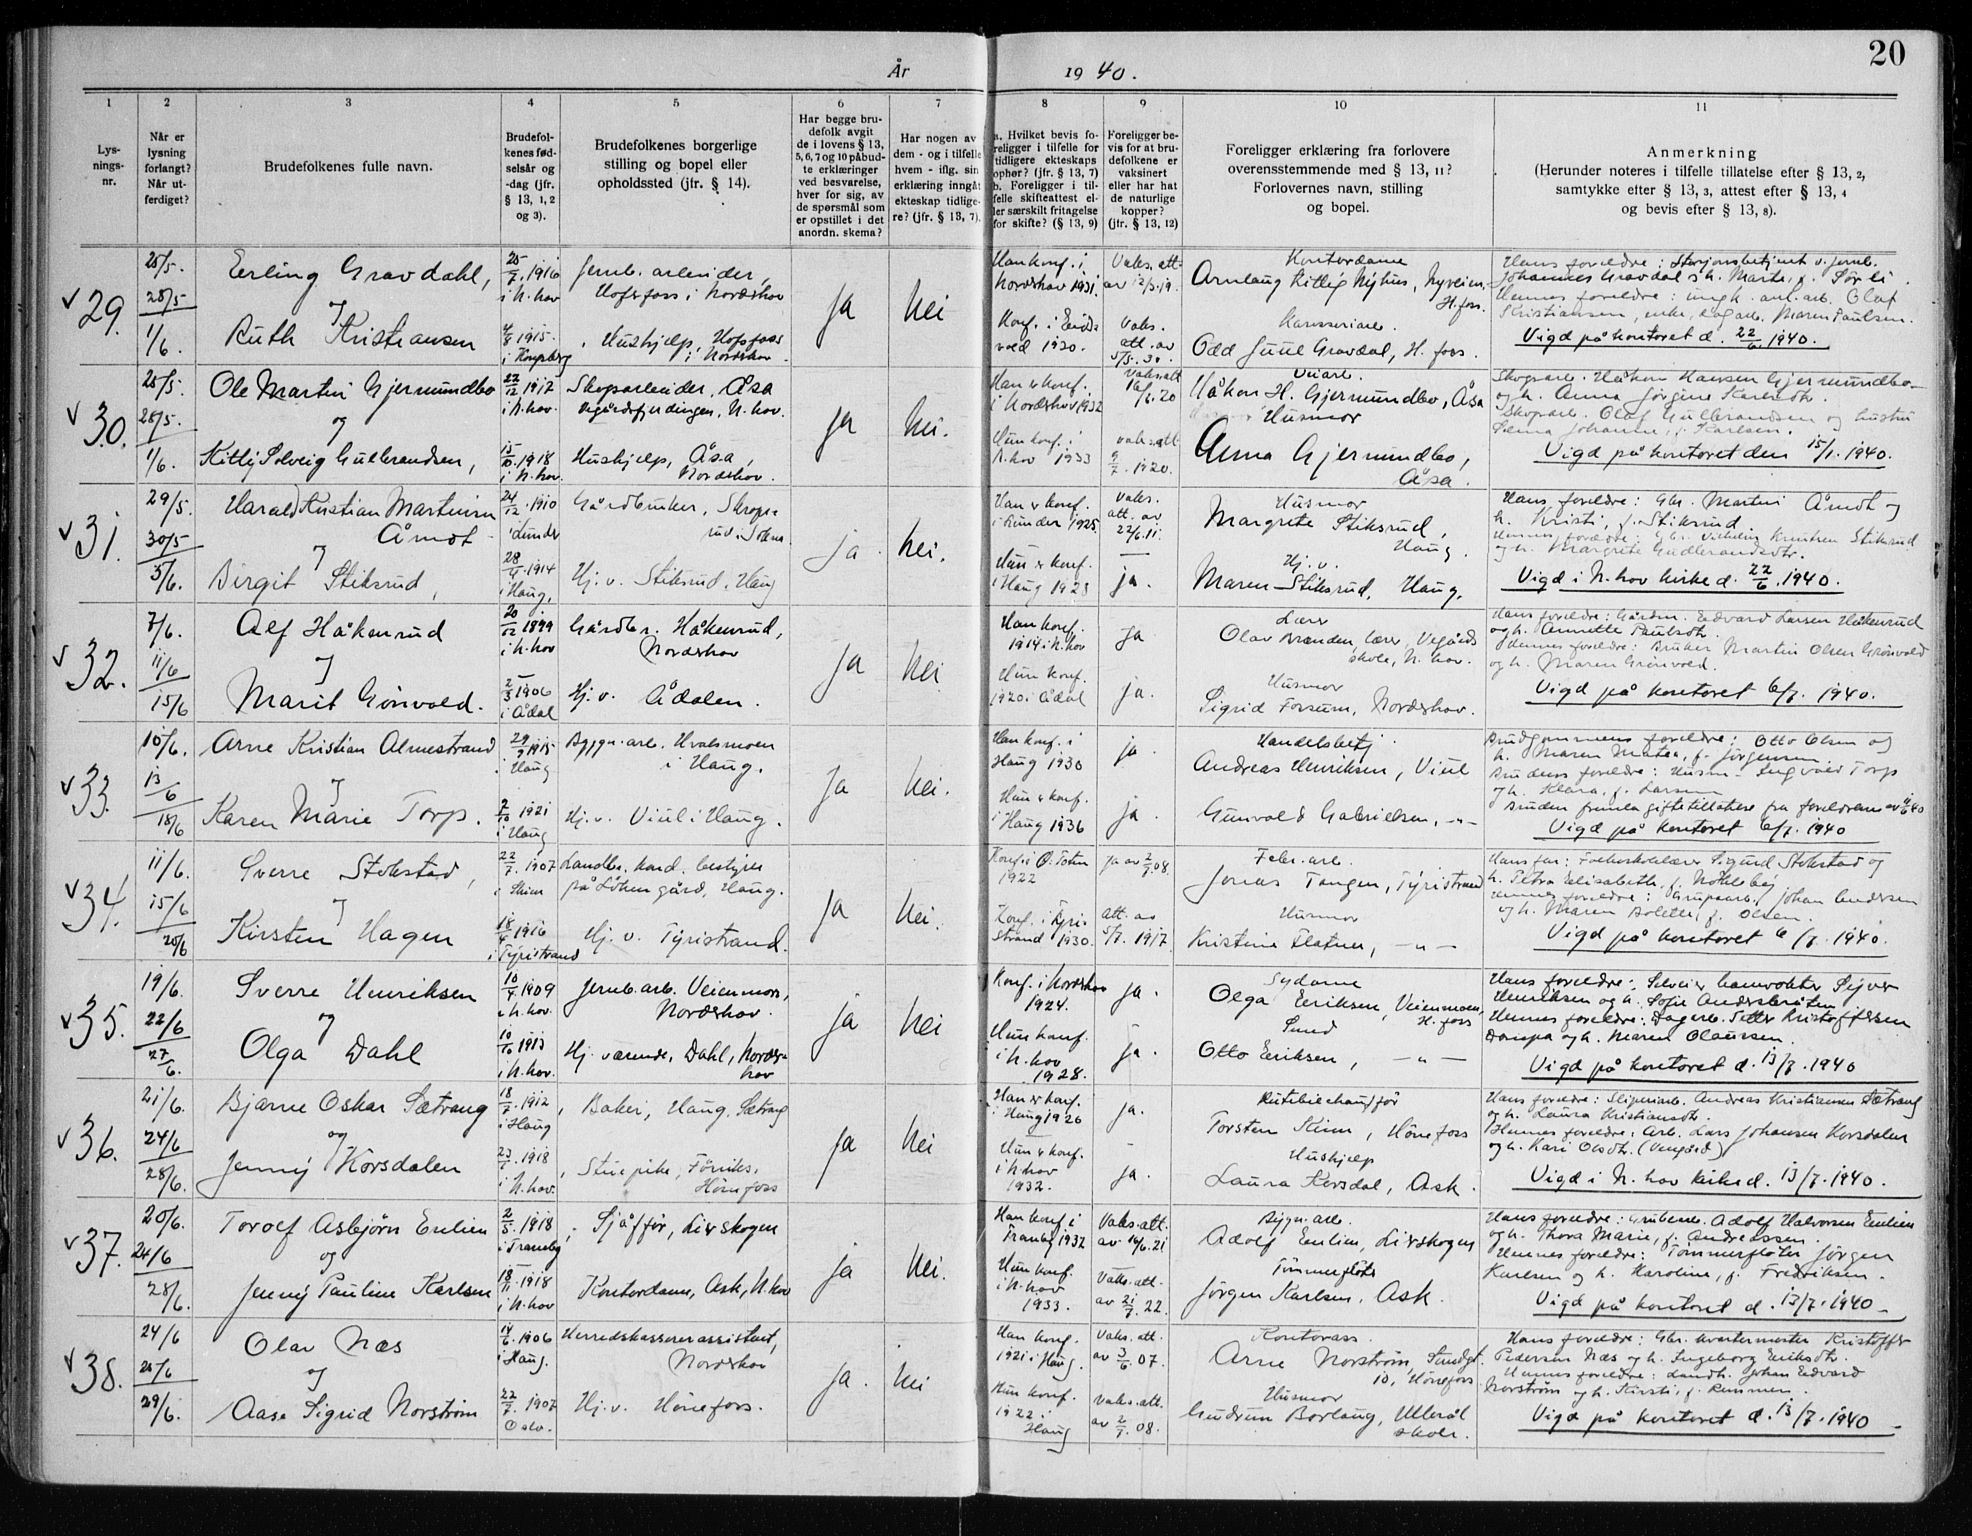 År 1940.
20
1 2 3 4 5 6 7 8 9 10 11
Lys-
nings-
nr.
Når er
lysning
forlangt?
Når ut-
ferdiget?
Brudefolkenes fulle navn.
Brudefol-
kenes fød-
selsår og
-dag (jfr.
§ 13, 1, 2
og 3).
Brudefolkenes borgerlige
stilling og bopel eller
opholdssted (jfr. § 14).
Har begge bru-
defolk avgit
de i lovens § 13,
5, 6, 7 og 10 påbud-
te erklæringer
ved besvarelse,
hver for sig, av
de spørsmål som
er opstillet i det
anordn. skema?
Har nogen av
dem - og i tilfelle
hvem - iflg. sin
erklæring inngått
ekteskap tidlige-
re? (jfr. § 13, 7).
a. Hvilket bevis fo-
religger i tilfelle for
tidligere ekteskaps
ophør? (jfr. § 13, 7)
b. Foreligger i til-
felle skifteattest el-
ler særskilt fritagelse
for skifte? (§ 13, 9)
Foreligger be-
vis for at bru-
defolkene er
vaksinert
eller har hat
de naturlige
kopper?
(jfr. § 13, 12)
Foreligger erklæring fra forlovere
overensstemmende med § 13, 11?
Forlovernes navn, stilling
og bopel.
Anmerkning
(Herunder noteres i tilfelle tillatelse efter § 13, 2,
samtykke efter § 13, 3, attest efter § 13, 4
og bevis efter § 13, 8).
v 29.
25/5.
28/5
1/6.
Erling Gravdahl,
og
Ruth Kristiansen
25/7. 1916
i N.hov
1915.
i Kongsberg
Jernb. arbeider,
Hofsfoss i Norderhov
Hushjelp, Hofsfoss
i Norderhov.
ja
nei
Han konf. i
Norderhov 1931.
Konf. i Eids-
vold 1930.
Vaks. att.
av 12/3.19.
Vaks.
att. av
5/5. 30.
Kontordame
Arnlaug Kitlig Nyhus, Nyveien,
H.foss.
Karosseriarb.
Odd Juul Gravdal, H.foss.
Hans foreldre: Stasjonsbetjent v. jernb.
Johannes Gravdal og h. Marte, f. Sørli.
Kristiansen, Maren Paulsen.
Vigd på kontoret d. 22/6. 1940.
v 30.
25/5.
28/5.
1/6.
Ole Martin Gjermundbo
og
Kitty Solveig Gulbrandsen,
22/12 1917
i N.hov.
15/10. 1918
i N.hov.
Skogsarbeider, Åsa
Vegårdsfjerdingen, N.hov.
Hushjelp, Åsa,
Norderhov.
ja
nei.
Han er konf.
i Norderhov 1932
Hun konf. i
N.hov 1933
Vaks.att.
16/6. 20
Vaks.att.
9/7. 1920.
Veiarb.
Håkon H. Gjermundbo, Åsa
Husmor
Anna Gjermundbo,
Åsa.
Skogsarb. Håkon Hansen Gjermundbo
og h. Anna Jørgine Karlsdtr.
Skogsarb. Olaf Gulbrandsen og hustru
Johanne, f. Karlsen.
Vigd på kontoret den 15/1. 1940.
v 31.
29/5.
30/5
3/6.
Harald Kristian Martinsen
Åmot
og
Birgit Stiksrud,
24/12. 1910
i Lunder
28/4 1914
i Haug,
Gårdbruker,
Hj. v. Stiksrud, Haug
ja
nei.
Han er konf.
i Lunder 1925.
Hun er konf.
i Haug 1928
Vaks.
att. av
22/6.11.
ja.
Husmor
Margrete Stiksrud,
Haug.
Hj. v.
Maren Stiksrud, Haug.
Hans foreldre: Gbr. Martin Åmot og
h. Kristi, f. Stiksrud.
og h. Margrete Gudbrandsdtr.
Vigd i N.hov kirke d. 22/6. 1940.
v 32.
7/6.
11/6
15/6
Alf Håkenrud
og
Marit Grønvold.
20/12 1899
i N.hov
2/3 1906
i Ådal
Gårdbr. Håkenrud,
Norderhov
Hj. v. Ådalen.
ja
nei
Han konf.
1914 i N.hov
Hun konf.
1920 i Ådal
ja
ja.
Lærer
Olav Brænden, lærer, Vegårds
skole, N.hov.
Husmor
Sigrid Forsum, Norderhov.
Hans foreldre: Gårdbr. Edvard Larsen Håkenrud
og h. Annette Paulsdtr.
Hennes foreldre: Bruker Martin Olsen Grønvold
og h. Maren Grønvold.
Vigd på kontoret 6/7. 1940.
v 33.
10/6.
13/6
18/6
Arne Kristian Almestrand
og
Karen Marie Torp.
29/9 1915
i Haug
7/10 1921
i Haug
Bygn.arb. Hvalsmoen
i Haug.
Hj. v. Viul i Haug.
ja
nei.
Han konf. i
Haug 1930
Hun er konf.
i Haug 1936
ja.
ja.
Handelsbetj.
Andreas Henriksen, Viul
Gunvald Gabrielsen, -"-
Brudgommens foreldre: Otto Olsen og
h. Maren Mathea, f. Jørgensen
Brudens foreldre: Husm. Ingvald Torp
og h. Klara, f. Larsen
Bruden fremla giftetillatelse fra foreldrene
Vigd på kontoret 6/7. 1940
v 34.
11/6.
15/6
20/6
Sverre Stokstad,
og
Kirsten Hagen
22/7. 1907
i Skien
18/4 1916
i Tyristrand
Landbr. kand. bestyrer
på Løken gård, Haug.
Hj. v. Tyristrand.
ja
nei.
Konf. i Ø. Toten
1922
Konf. i Tyri-
strand 1930.
ja av 2/7 08.
att. av
5/7. 1917
Fabr. arb.
Jonas Tangen, Tyristrand
Husmor
Kristine Flatner, -"-
Hans far: Folkeskolelærer Sigurd Stokstad og
h. Petra Elisabeth, f.
Hennes foreldre: Grubearb. Johan Andersen
og h. Maren Bolette, f. Olsen.
Vigd på kontoret 6/7. 1940.
v 35.
19/6.
22/6
27/6.
Sverre Henriksen
og
Olga Dahl
10/4. 1909
i N.hov.
10/10 1913
i N.hov.
Jernb.arb. Veienmoen,
Norderhov.
Hj. værende, Dahl, Norder-
hov
ja
nei
Konf. i Norderhov
1924.
Hun konf.
i N.hov
1928.
ja.
ja.
Sydame
Olga Eriksen, Veienmoen,
H.foss
Smed
Otto Eriksen, -"-
Hans foreldre: banevokter Sejver
Henriksen og h. Sofie Andersbråten
Hennes foreldre: Dagarb. Petter Kristoffersen
og h. Maren Olaussen.
Vigd på kontoret d. 13/7. 1940
v 36.
21/6.
24/6
28/6.
Bjarne Oskar Sætrang
og
Jenny Korsdalen
18/7. 1912
i Haug
23/7. 1918
i N.hov.
Baker, Haug, Sætrang
Stuepike, Føniks,
Hønefoss
ja
nei
Han er konf.
i Haug 1926
Hun er konf.
i N.hov
1932.
ja.
ja.
Rutebilchauffør
Torsten Skinn, Hønefoss
Hushjelp
Laura Korsdal, Ask.
Hans foreldre: Sliperiarb. Andreas Kristiansen Sætrang
og h. Laura Kristiansdtr.
Hennes foreldre: Arb. Lars Johansen Korsdalen
og h. Kari Olsdtr.
Vigd i N.hov kirke d. 13/7. 1940.
v 37.
20/6.
24/6
28/6.
Torolf Asbjørn Enlien
og
Jenny Pauline Karlsen
2/5. 1918
i Tranby
18/11. 1918
i N.hov
Sjåffør, Lierskogen
Kontordame, Ask, N.hov
ja
nei.
Han konf. i
Tranby 1932
Hun konf.
i N.hov
1933.
Vaks. att.
av 16/6. 21
Vaks. att.
av 21/7. 22.
Bygn. arb.
Adolf Enlien, Lierskogen
Tømmerfløter
Jørgen Karlsen, Ask.
Hans foreldre: Grubearb. Adolf Halvorsen Enlien
og h. Thora Marie, f. Andreassen.
Hennes foreldre: Tømmerfløter Jørgen
Karlsen og h. Karoline, f. Fredriksen.
Vigd på kontoret d. 13/7. 1940
v 38.
24/6
25/6
29/6.
Olav Næs
og
Aase Sigrid Norstrøm
14/6. 1906
i Haug.
22/7. 1907
Oslo.
Herredskassererassistent,
Norderhov
Hj. v. Hønefoss.
ja.
nei
Han konf.
1921 i Haug
Hun konf.
1922 i
Haug
Vaks. att.
av 3/6 07.
Vaks. att.
av 2/7. 08.
Kontorass.
Arne Norstrøm, Sundgt.
10, Hønefoss
Husmor
Gudrun Borlaug, Ullerål
skole.
Hans foreldre: Gbr. kvartermester Kristoffer
Pedersen Næs og h. Ingeborg Eriksdtr.
Hennes foreldre: Landh. Johan Edvard
Norstrøm og h. Kirsti, f. Remmen.
Vigd på kontoret d. 13/7. 1940